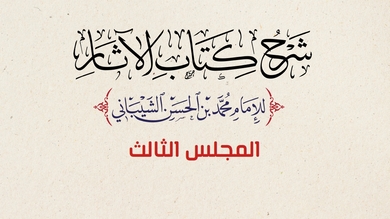 شَرْحُ كِتَابِ الآثَارِ
لِلإِمَامِ مُحَمَّد بْنِ الْحَسَنِ الشَّيْبَانِي
المجلس الثالث